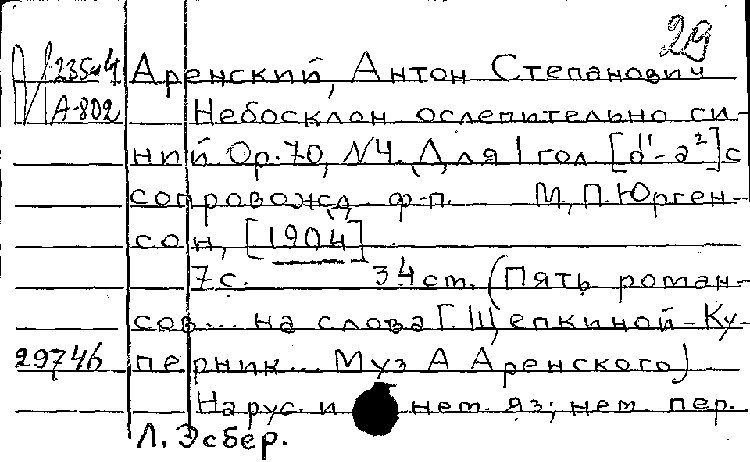 29
235н4 Аренский, Антон Степанович
А-802 Небосклон ослепительно си-
ний Op. 70, N4. Для 1 гол [d¹-a²] с
сопровожд ф-п. М., П. Юрген-
сон, [1904]
7с. 34 ст. (Пять роман-
сов... на слова Г. Щепкиной-Ку-
29746 перник... Муз А Аренского)
На рус. и нем. яз; нем. пер.
Л. Эсбер.